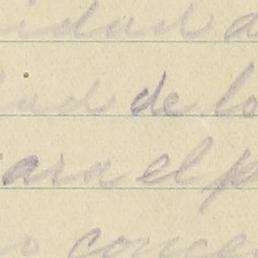 idad a
dad de lo
ara el p
o conce